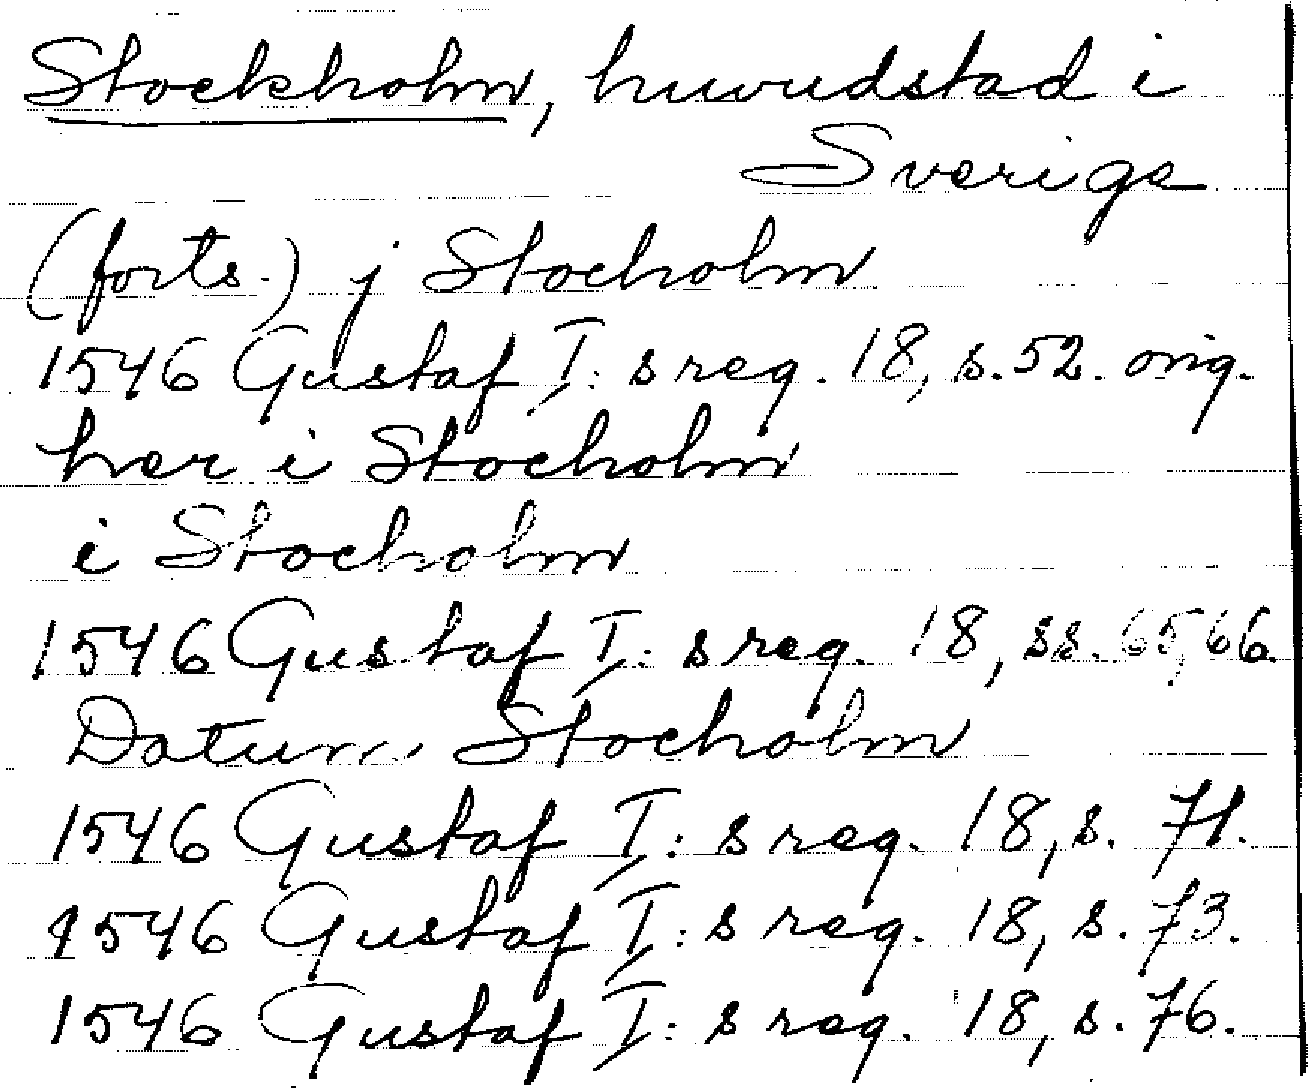 Stockholm, huvudstad i
Sverige
(forts.) j Stocholm
1546 Gustaf I: s reg. 18, s. 52. orig.
her i Stocholm
i Stocholm
1546 Gustaf I: s reg. 18, ss. 65, 66.
Datum Stocholm
1546 Gustaf I: s reg. 18, s. 71.
1546 Gustaf I: s reg. 18, s. 73.
1546 Gustaf I: s reg. 18, s. 76.